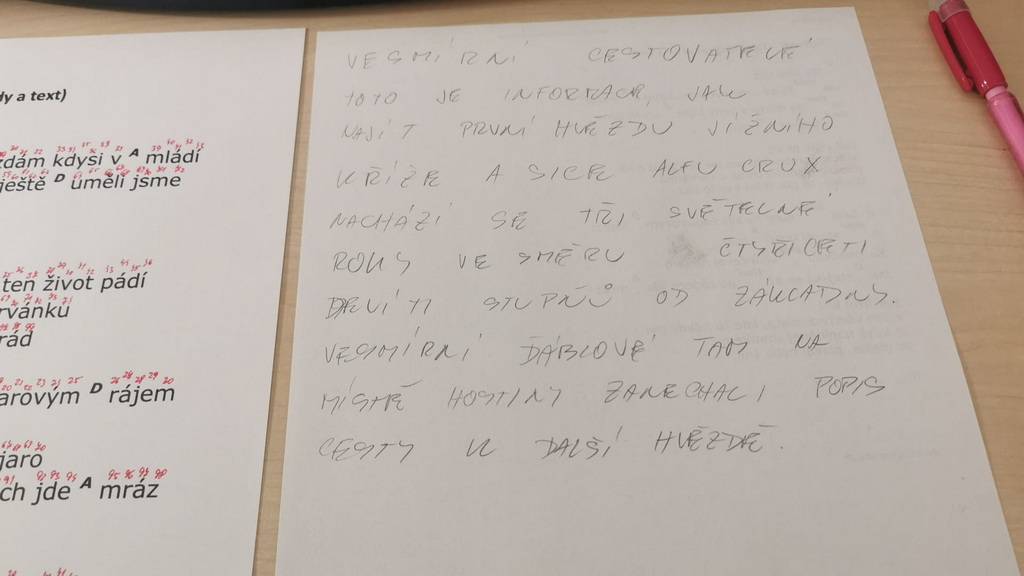 dy a text)
zdám kdysi v A mládí
ještě D uměli jsme
ten život pádí
rvánku
rád
arovým D rájem
jaro
ch jde A mráz
VESMÍRNÍ CESTOVATELÉ
TOTO JE INFORMACE, JAK
NAJÍT PRVNÍ HVĚZDU JIŽNÍHO
KŘÍŽE A SICE ALFU CRUX
NACHÁZÍ SE TŘI SVĚTELNÉ
ROKY VE SMĚRU ČTYŘICETI
DEVÍTI STUPŇŮ OD ZÁKLADNY.
VESMÍRNÍ ĎÁBLOVÉ TAM NA
MÍSTĚ HOSTINY ZANECHALI POPIS
CESTY K DALŠÍ HVĚZDĚ.